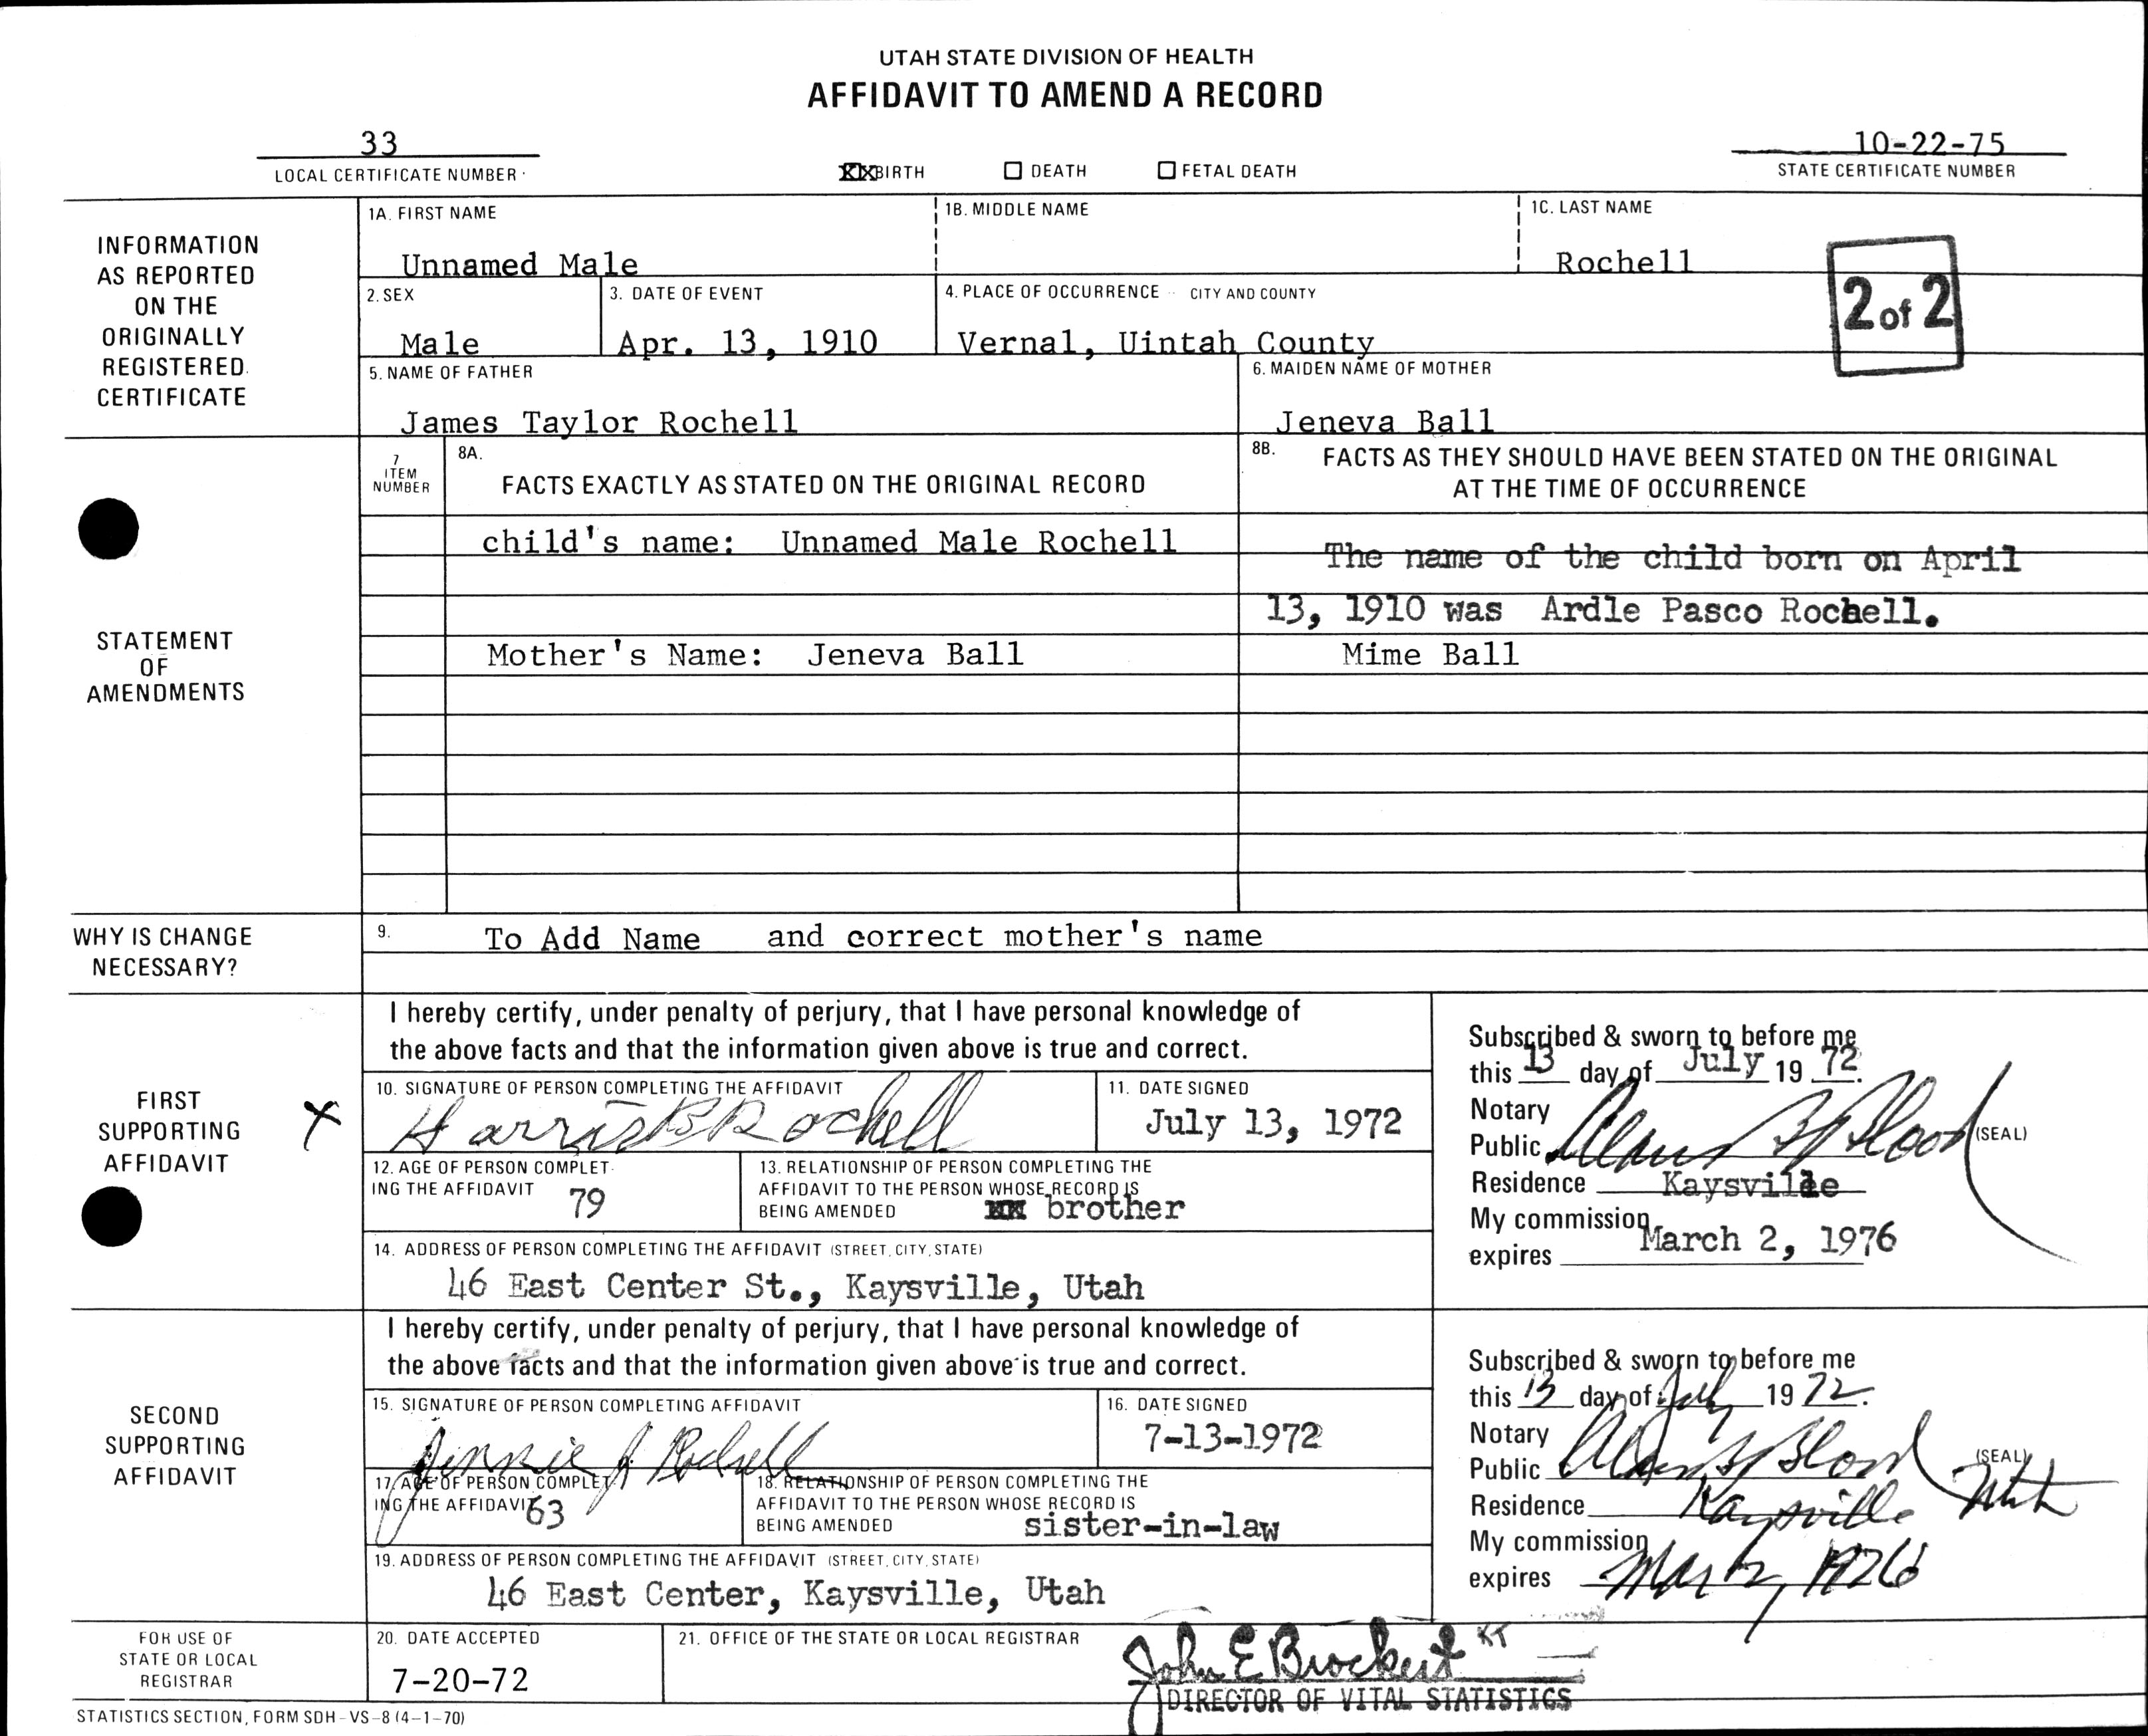 UTAH STATE DIVISION OF HEALTH
AFFIDAVIT TO AMEND A RECORD
33
LOCAL CERTIFICATE NUMBER
XX BIRTH ☐ DEATH ☐ FETAL DEATH
10-22-75
STATE CERTIFICATE NUMBER
INFORMATION
AS REPORTED
ON THE
ORIGINALLY
REGISTERED
CERTIFICATE
1A. FIRST NAME
Unnamed Male
1B. MIDDLE NAME
1C. LAST NAME
Rochell
2 of 2
2. SEX
Male
3. DATE OF EVENT
Apr. 13, 1910
4. PLACE OF OCCURRENCE - CITY AND COUNTY
Vernal, Uintah County
5. NAME OF FATHER
James Taylor Rochell
6. MAIDEN NAME OF MOTHER
Jeneva Ball
STATEMENT
OF
AMENDMENTS
7
ITEM
NUMBER
8A.
FACTS EXACTLY AS STATED ON THE ORIGINAL RECORD
8B. FACTS AS THEY SHOULD HAVE BEEN STATED ON THE ORIGINAL
AT THE TIME OF OCCURRENCE
child's name: Unnamed Male Rochell
The name of the child born on April
13, 1910 was Ardle Pasco Rochell.
Mother's Name: Jeneva Ball
Mime Ball
WHY IS CHANGE
NECESSARY?
9. To Add Name and correct mother's name
FIRST
SUPPORTING
AFFIDAVIT
X
I hereby certify, under penalty of perjury, that I have personal knowledge of
the above facts and that the information given above is true and correct.
10. SIGNATURE OF PERSON COMPLETING THE AFFIDAVIT
Harris B Rochell
11. DATE SIGNED
July 13, 1972
12. AGE OF PERSON COMPLET-
ING THE AFFIDAVIT 79
13. RELATIONSHIP OF PERSON COMPLETING THE
AFFIDAVIT TO THE PERSON WHOSE RECORD IS
BEING AMENDED brother
14. ADDRESS OF PERSON COMPLETING THE AFFIDAVIT (STREET, CITY, STATE)
46 East Center St., Kaysville, Utah
Subscribed & sworn to before me
this 13 day of July 19 72.
Notary
Public (SEAL)
Residence Kaysville
My commission
expires March 2, 1976
SECOND
SUPPORTING
AFFIDAVIT
I hereby certify, under penalty of perjury, that I have personal knowledge of
the above facts and that the information given above is true and correct.
15. SIGNATURE OF PERSON COMPLETING AFFIDAVIT
Jennie J Rochell
16. DATE SIGNED
7-13-1972
17. AGE OF PERSON COMPLET-
ING THE AFFIDAVIT 63
18. RELATIONSHIP OF PERSON COMPLETING THE
AFFIDAVIT TO THE PERSON WHOSE RECORD IS
BEING AMENDED sister-in-law
19. ADDRESS OF PERSON COMPLETING THE AFFIDAVIT (STREET, CITY, STATE)
46 East Center, Kaysville, Utah
Subscribed & sworn to before me
this 13 day of July 19 72.
Notary
Public Blood (SEAL)
Residence Kaysville Utah
My commission
expires Mar 2, 1976
FOR USE OF
STATE OR LOCAL
REGISTRAR
20. DATE ACCEPTED
7-20-72
21. OFFICE OF THE STATE OR LOCAL REGISTRAR
John E Brockert KT
DIRECTOR OF VITAL STATISTICS
STATISTICS SECTION, FORM SDH-VS-8 (4-1-70)